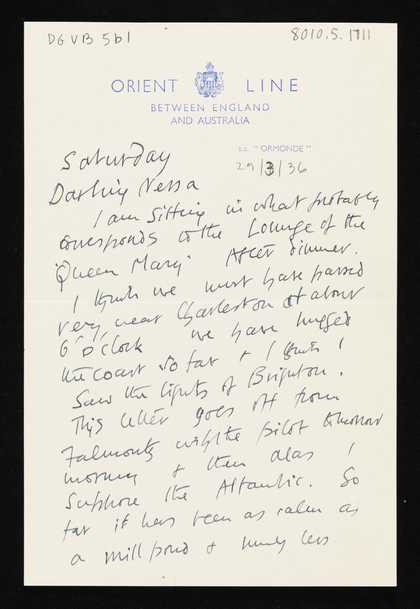 DG VB 5b1
8010.5.1711
ORIENT LINE
BETWEEN ENGLAND
AND AUSTRALIA
s.s. "ORMONDE"
29/3/36
Saturday
Darling Nessa
I am sitting in what probably
corresponds to the Lounge of the
'Queen Mary' After dinner.
I think we must have passed
very near Charleston at about
6 o'clock we have hugged
the coast so far & I think I
saw the lights of Brighton.
This letter goes off from
Falmouth with the pilot tomorrow
morning & then alas I
suppose the Atlantic. So
far it has been as calm as
a mill pond & much less